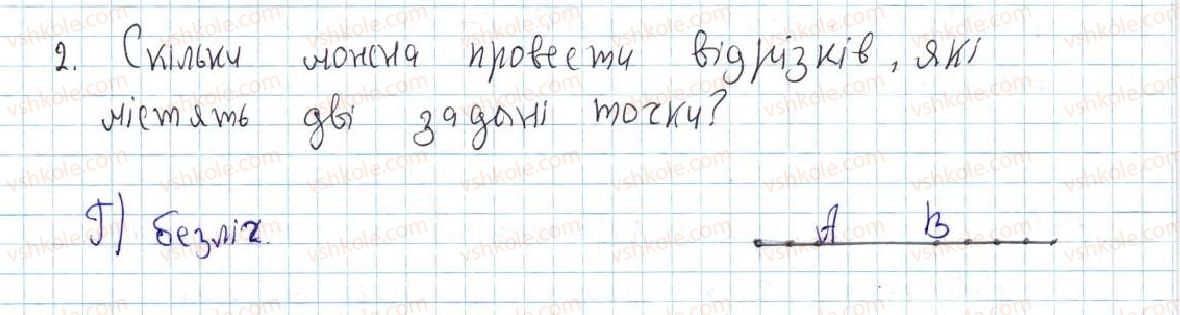 2. Скільки можна провести відрізків, які
містять дві задані точки?
Г) безліч.
A B